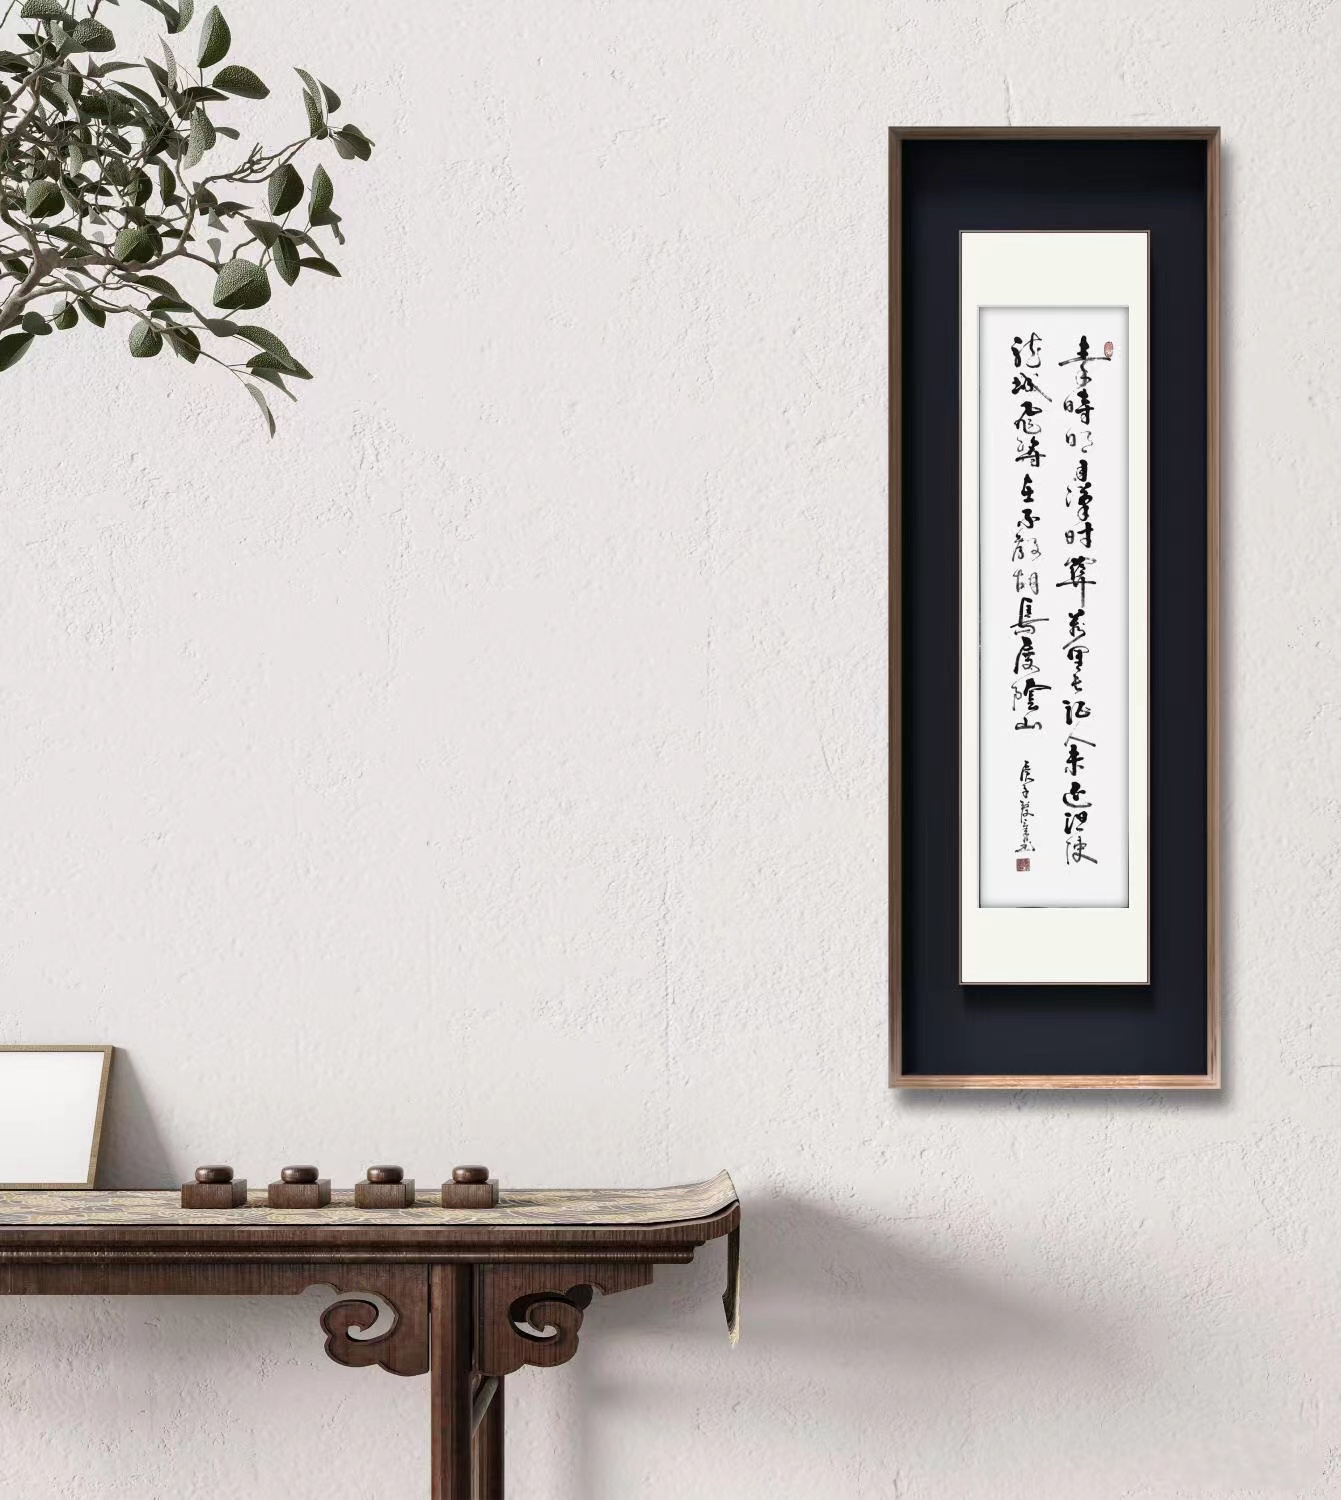 秦時明月漢時關萬里長征人未還但使
龍城飛將在不教胡馬度陰山
庚子